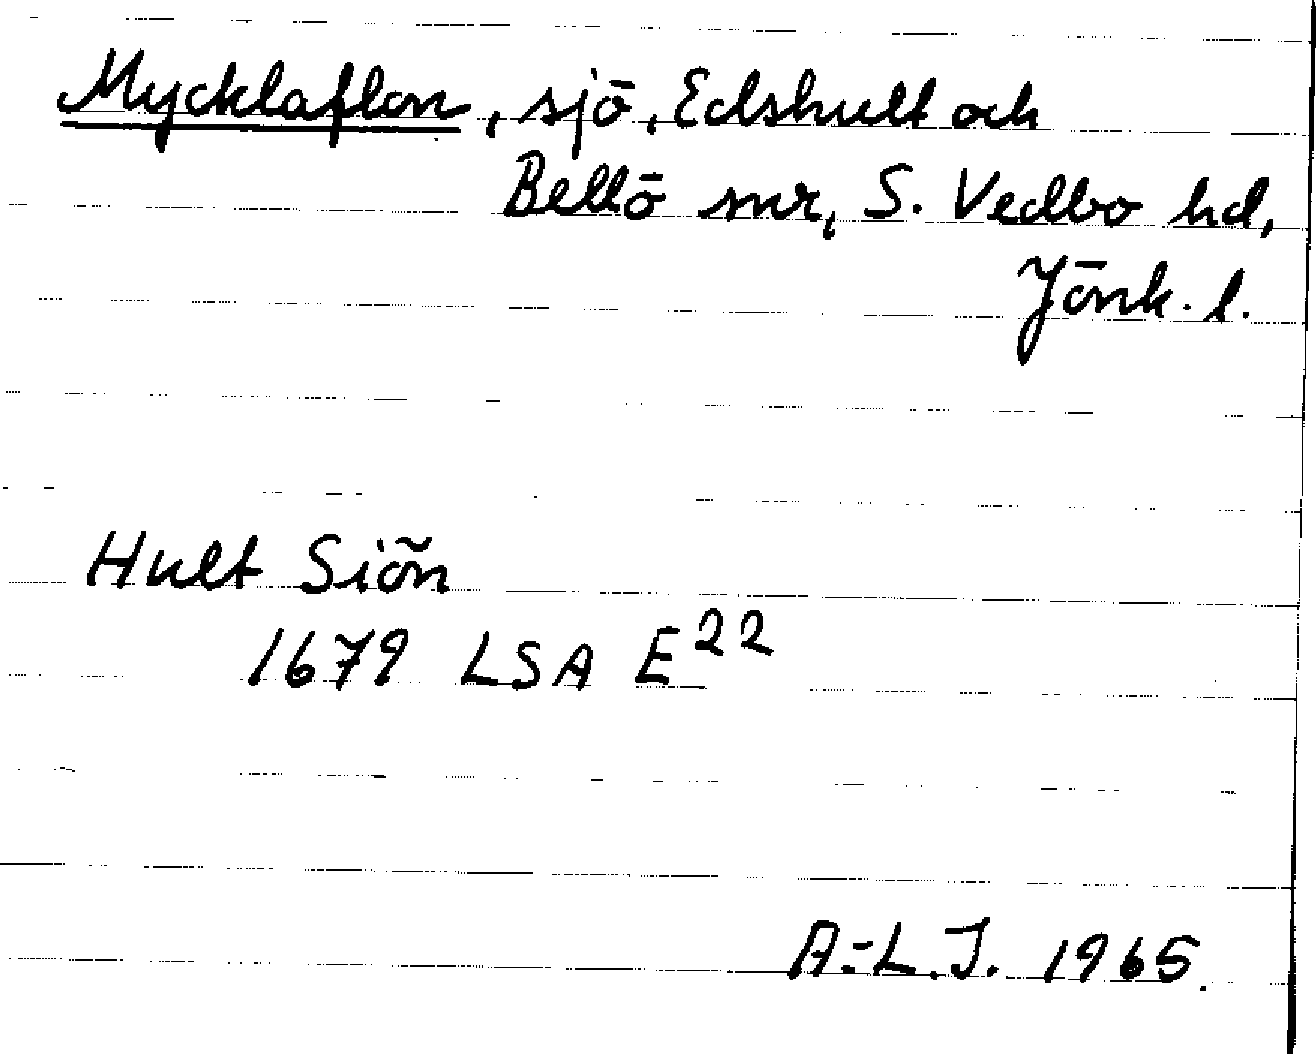 Mycklaflon, sjö, Edshult och
Bellö snr, S. Vedbo hd,
Jönk. l.
Hult Siön
1679 LSA E22
A.-L.J. 1965.